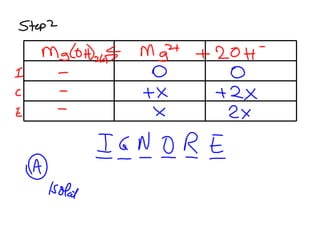 Step 2
Mg(OH)₂(s) ⇌ Mg²⁺ + 2OH⁻
I - 0 0
C - +x +2x
E - x 2x
IGNORE
A